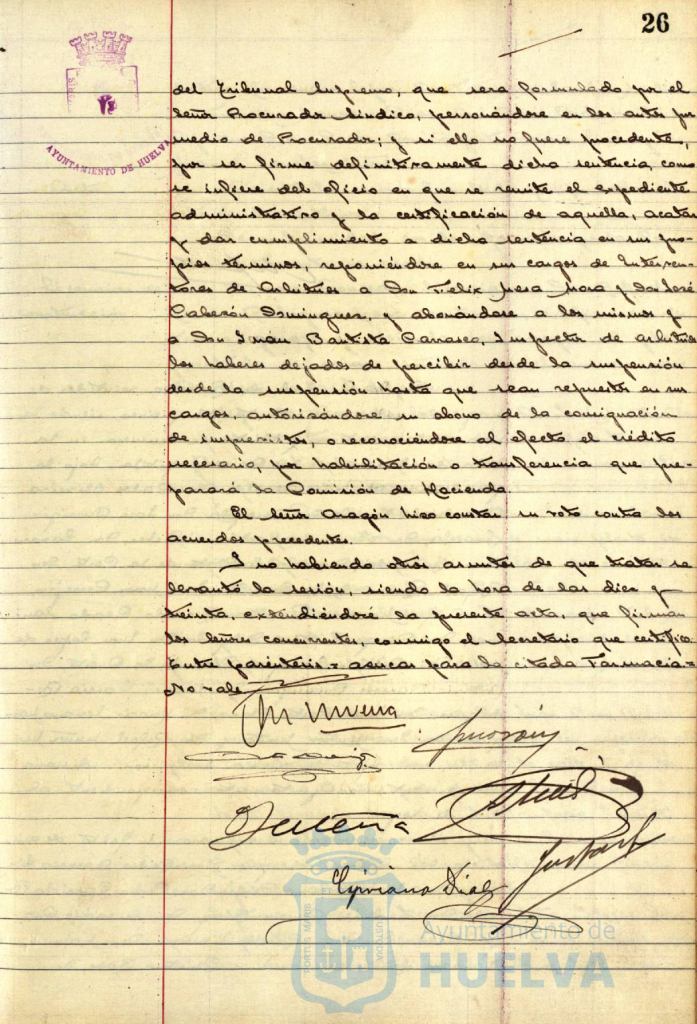 26
AYUNTAMIENTO DE HUELVA
del Tribunal Supremo, que sera formulado por el
Señor Procurador Sindico, personándose en los autos por
medio de Procurador; y si ello no fuere procedente,
por ser firme definitivamente dicha sentencia, como
se infiere del oficio en que se remite el expediente
administrativo y la certificación de aquella, acatar
y dar cumplimiento a dicha sentencia en sus pro-
pios términos, reponiéndose en sus cargos de Interven-
tores de Arbitrios a Don Felix Mesa Mora y Don José
Cabezón Dominguez, y abonándose a los mismos y
a Don Juan Bautista Carrasco, Inspector de arbitrios
los haberes dejados de percibir desde la suspensión
desde la suspensión hasta que sean repuestos en sus
cargos, autorizándose su abono de la consignación
de imprevistos, o reconociéndose al efecto el crédito
necesario, por habilitación o transferencia que pre-
parará la Comisión de Hacienda.
El Señor Aragón hizo constar su voto contra los
acuerdos precedentes.
Y no habiendo otros asuntos de que tratar se
levantó la sesión, siendo la hora de las diez y
treinta, extendiéndose la presente acta, que firman
los Señores concurrentes, conmigo el Secretario que certifico.
Entre parentesis = asucar para la citada Farmacia. =
No vale
Cipriano Diaz
Ayuntamiento de
HUELVA